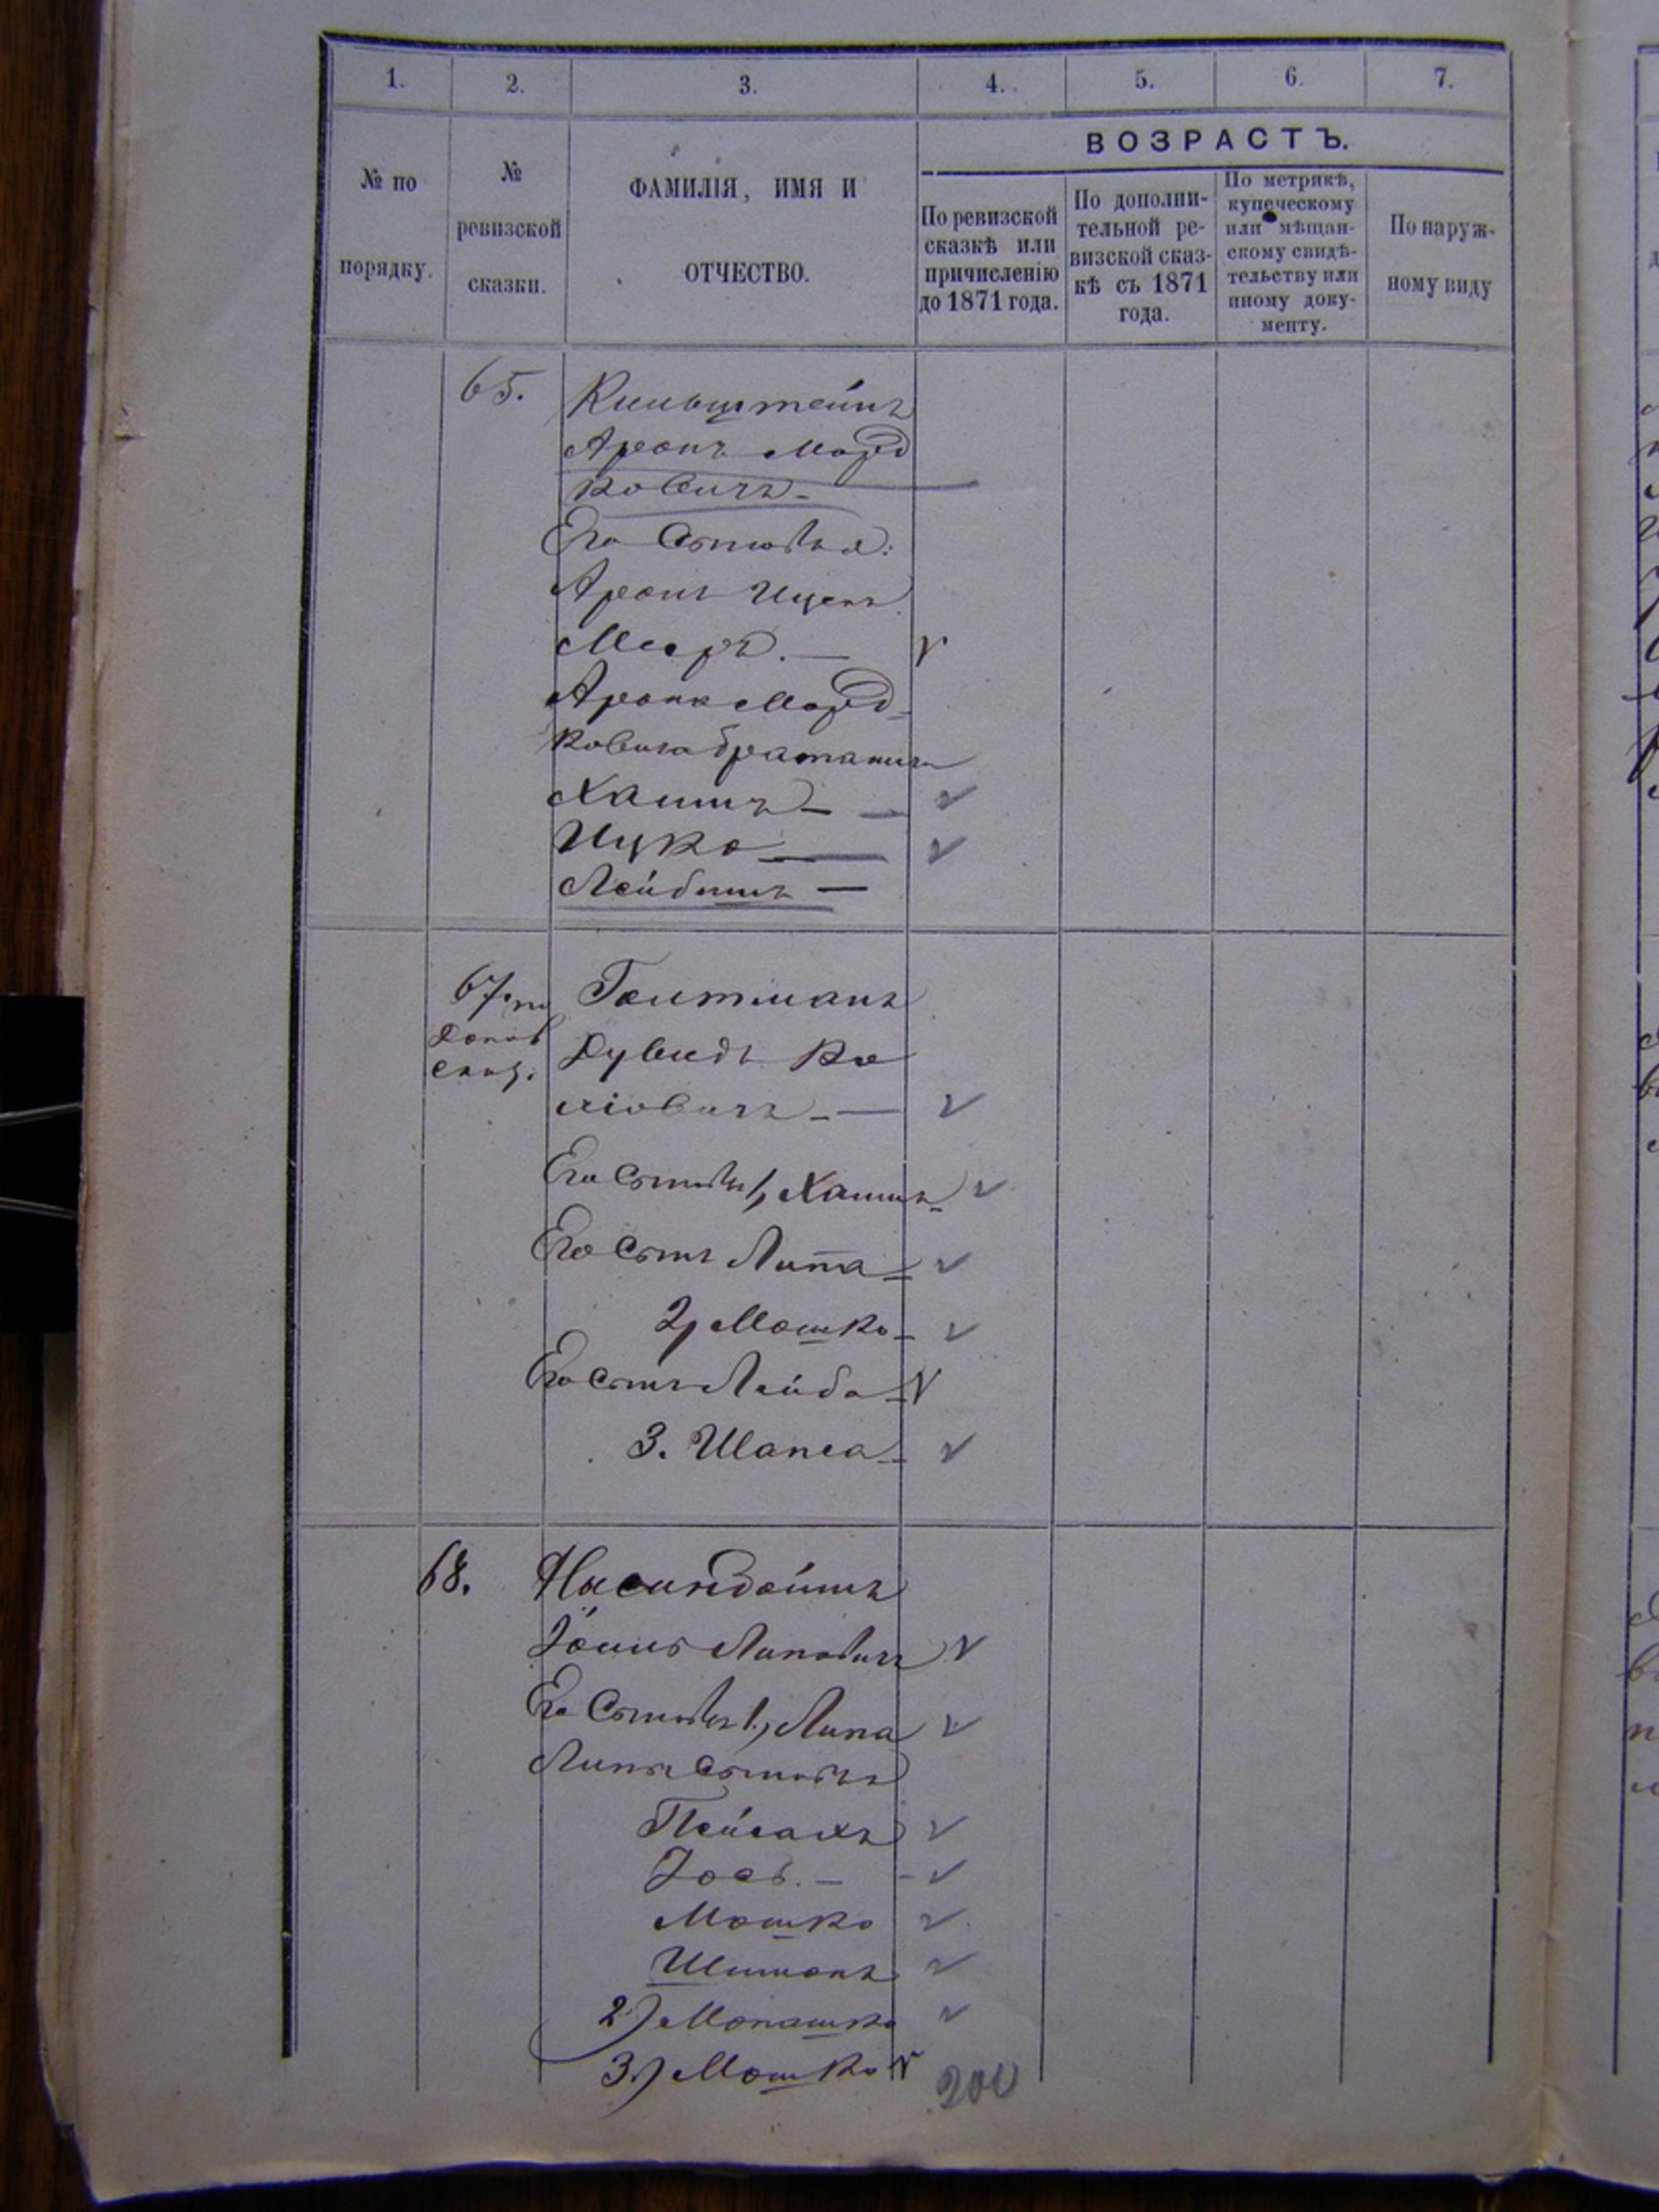 1. 2. 3. 4. 5. 6. 7.
№ по порядку.
№ ревизской сказки.
ФАМИЛІЯ, ИМЯ И ОТЧЕСТВО.
ВОЗРАСТЪ.
По ревизской
сказкѣ или
причисленію
до 1871 года.
По дополни-
тельной ре-
визской сказ-
кѣ съ 1871
года.
По метрикѣ,
купеческому
или мѣщан-
скому свидѣ-
тельству или
иному доку-
менту.
По наруж-
ному виду
65. Кильштейнъ
Аронъ Морд
ковичъ -
Его Сыновья:
Аронъ Ицекъ
Меэръ. —
Арона Морд-
ковича братаничи
Хаимъ —
Ицко —
Лейбишъ —
67. по
Допол
Сказ.
Гентманъ
Дувидъ Ке
ліовичъ —
Его Сыновья 1, Хаимъ
Его Сынъ Липа
2, Мошко
Его Сынъ Лейба
3. Шапса
68.
Іойнъ Липовичъ
Его Сыновья 1, Липа
Липы Сыновья
Пейсахъ
Іось. —
Мошко
Шимонъ
2) Монашко
3) Мошко
200